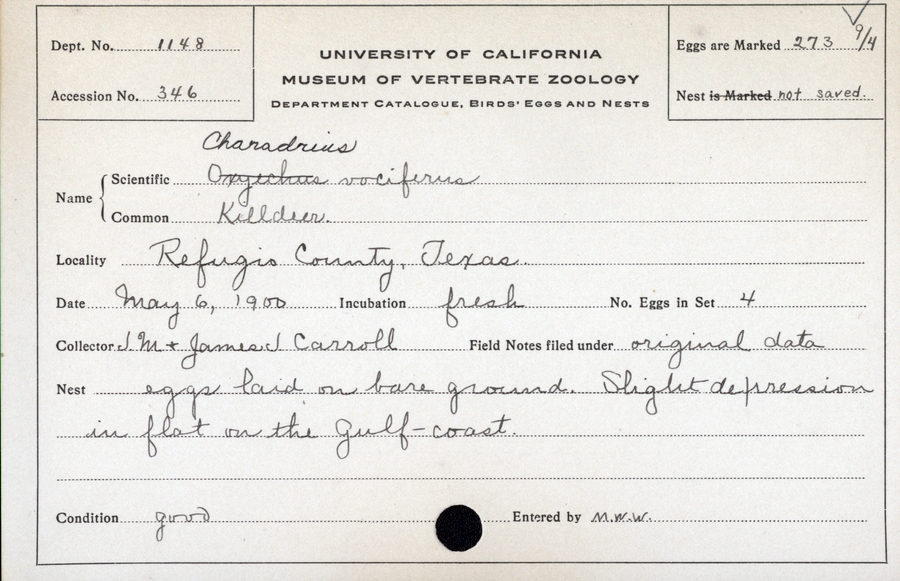 Dept. No. 1148
Accession No. 346
UNIVERSITY OF CALIFORNIA
MUSEUM OF VERTEBRATE ZOOLOGY
DEPARTMENT CATALOGUE, BIRDS' EGGS AND NESTS
Eggs are Marked 273 9/4
Nest is Marked not saved.
Charadrius
Name { Scientific Oxyechus vociferus
Common Killdeer.
Locality Refugio County, Texas.
Date May 6, 1900 Incubation fresh No. Eggs in Set 4
Collector J M + James J Carroll Field Notes filed under original data
Nest eggs laid on bare ground. Slight depression
in flat on the Gulf-coast.
Condition good Entered by M.W.W.